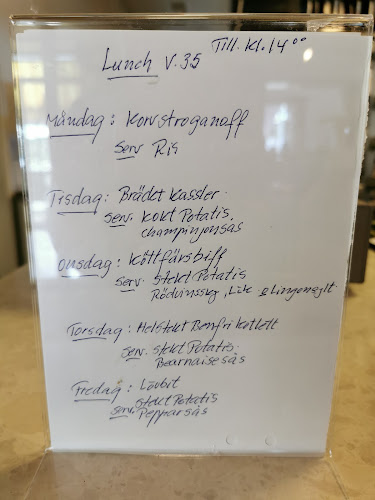 Till. Kl. 14 00
Lunch V. 35
Måndag: Korvstroganoff
Serv Ris
Tisdag: Brädet Kassler.
serv. Kokt Potatis.
champinjonsås
Onsdag: Köttfärsbiff
serv. Stekt Potatis
Rödvinssky, Lök
Torsdag: Helstekt Benfri kotlett
serv. stekt Potatis.
Bearnaisesås
Fredag: Lövbit
stekt Potatis
serv. Pepparsås